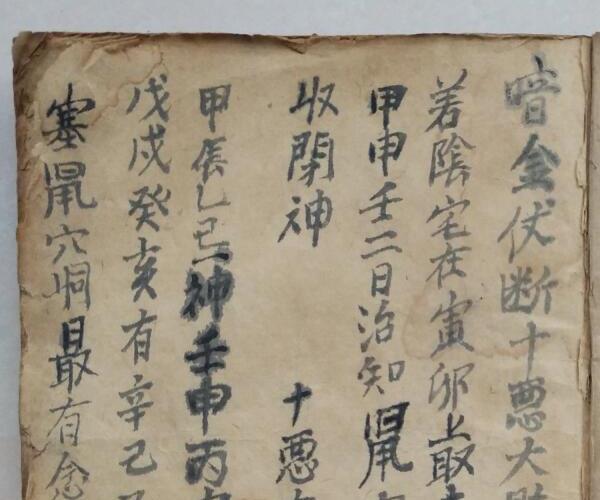 暗金伏断十悪大
若陰宅在寅卯上取
甲申壬二日治知鼠
收閉神 十悪
甲辰乙巳神壬申丙
戊戌癸亥有辛己
塞鼠穴洞最有念